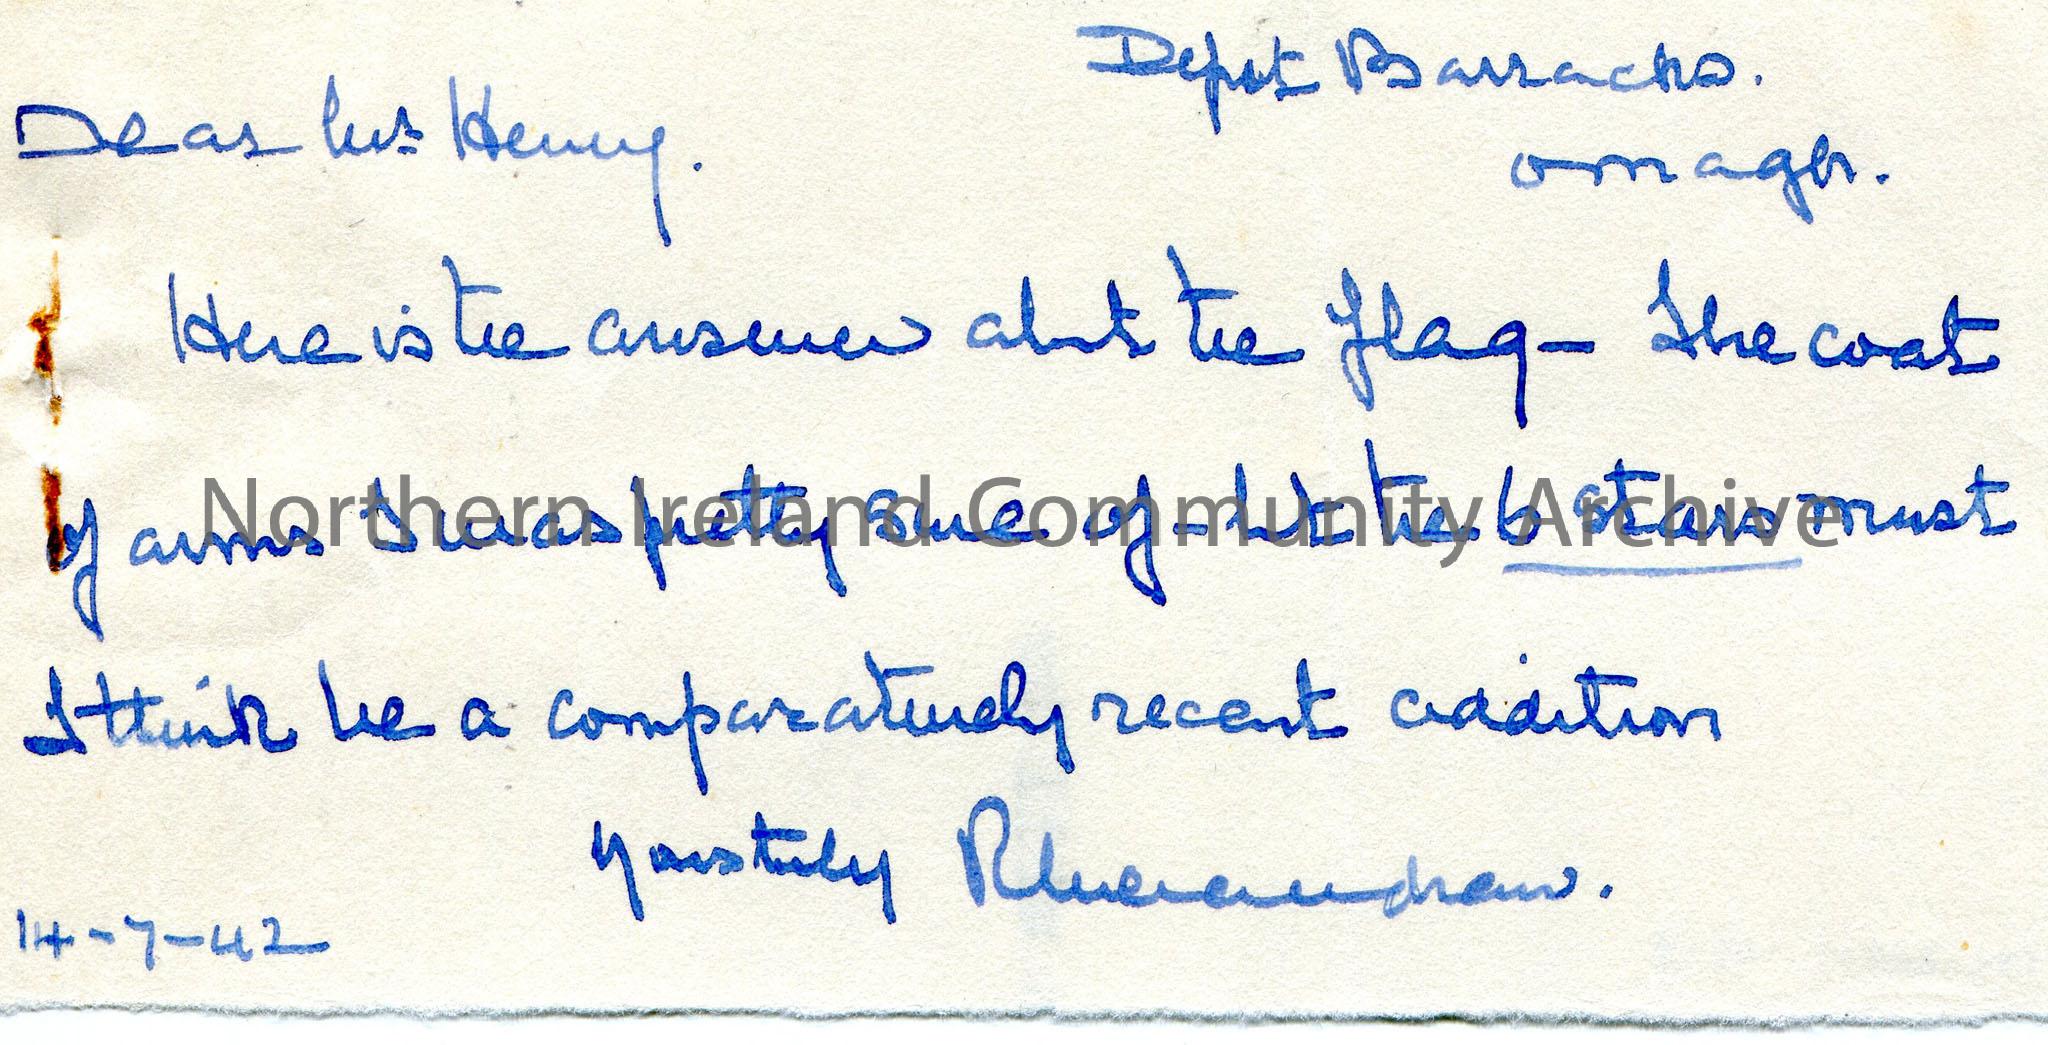 Depot Barracks.
Omagh.
Dear Mrs Henry.
Here is the answer about the Flag - The coat
of arms I was pretty sure of - but the 6 stars must
Northern Ireland Community Archive
I think be a comparatively recent addition
Yours truly
14-7-42